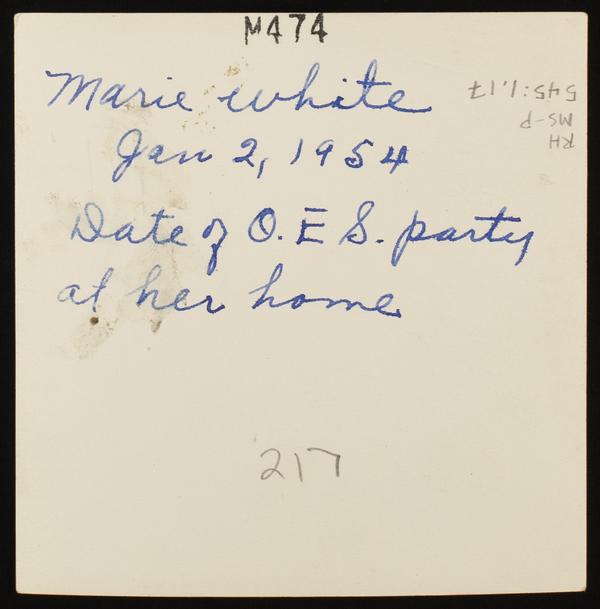 M474
Marie White
Jan 2, 1954
Date of O.E.S. party
at her home
217
RH
MS-P
545:1.17